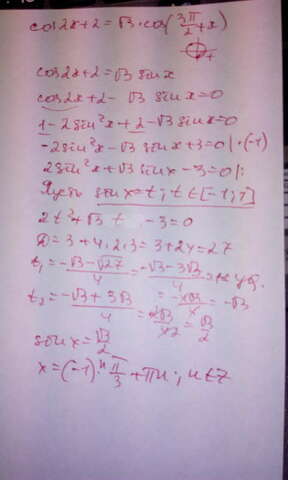 cos2x+2=√3·cos(3π/2+x)
cos2x+2=√3 sinx
cos2x+2-√3 sinx=0
1-2sin²x+2-√3 sinx=0
-2sin²x-√3 sinx+3=0|·(-1)
2sin²x+√3 sinx-3=0|:
Пусть sinx=t; t∈[-1;1]
2t²+√3 t -3=0
D=3+4·2·3=3+24=27
t₁=(-√3-√27)/4=(-√3-3√3)/4 =
= -4√3/4 = -√3
t₂=(-√3+3√3)/4=2√3/4=√3/2
sinx=√3/2
x=(-1)ⁿ·π/3+πn; n∈Z